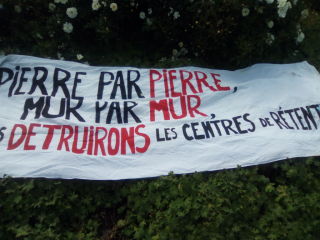 PIERRE PAR PIERRE,
MUR PAR MUR,
DETRUIRONS LES CENTRES DE RÉTENT